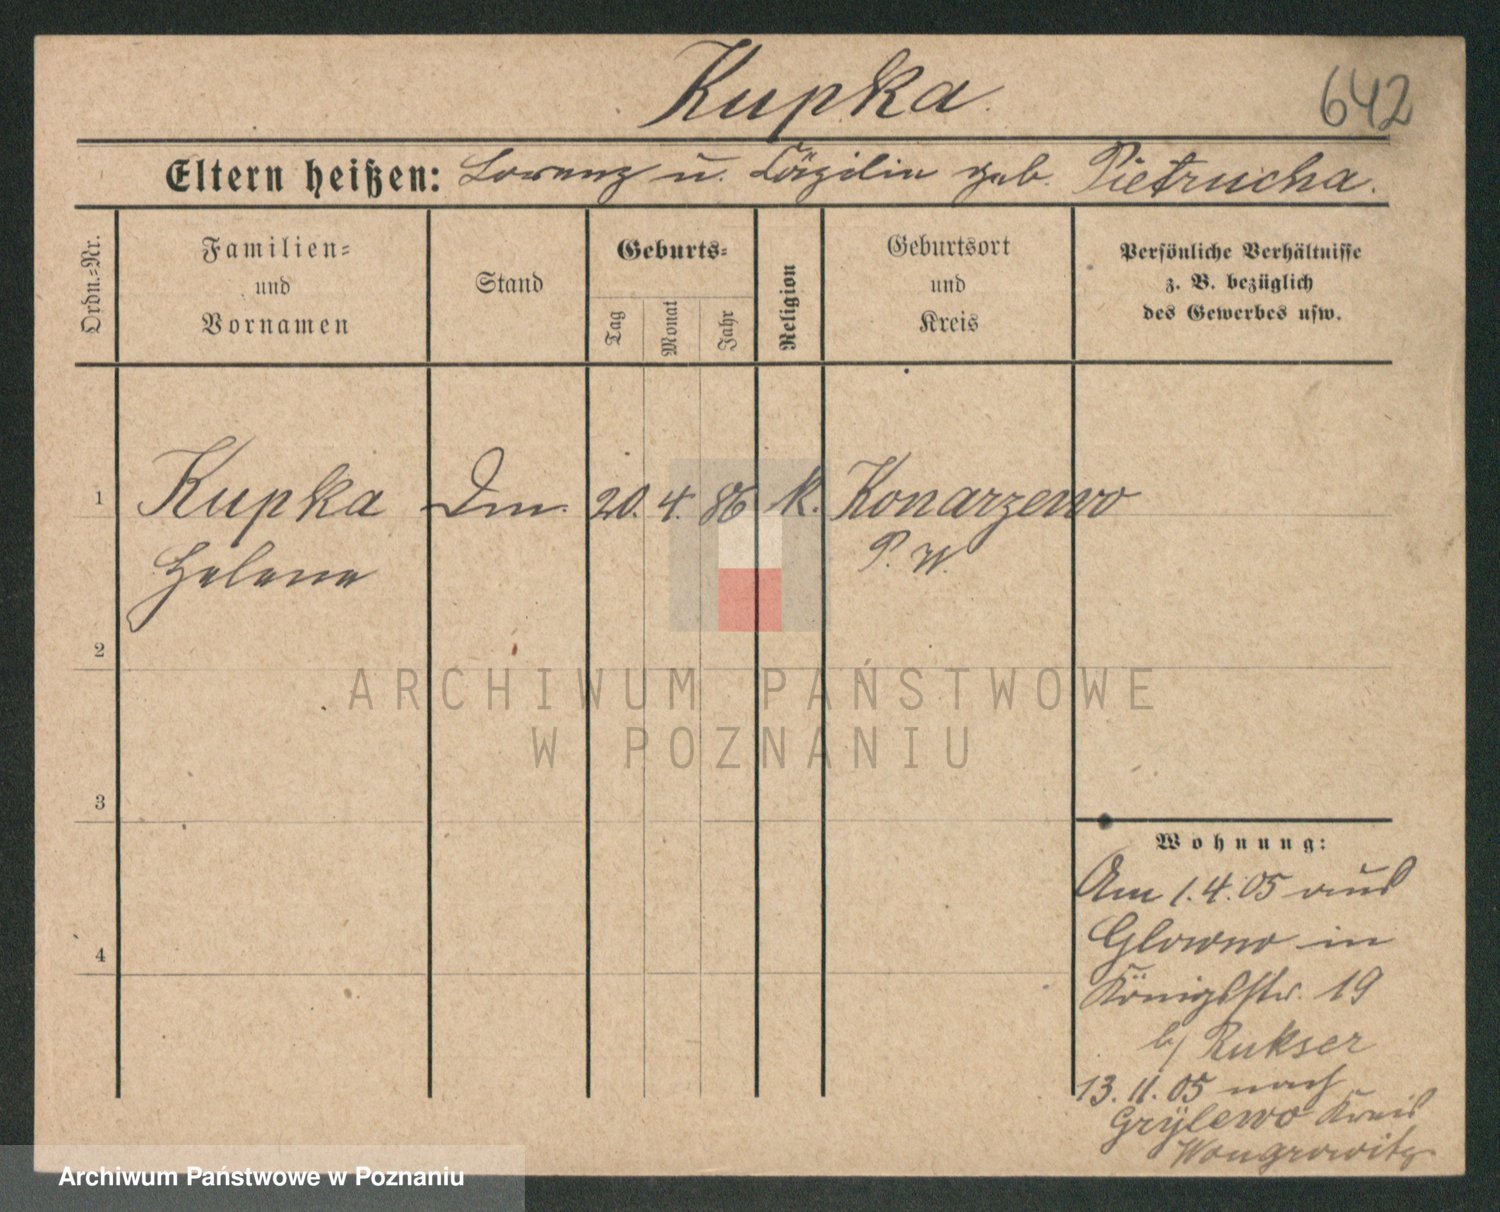 Kupka.
642
Eltern heißen: Lorenz u. Cäzilie geb. Pietrucha.
Ordn.=Nr.
Familien=
und
Vornamen
Stand
Geburts=
Tag
Monat
Jahr
Religion
Geburtsort
und
Kreis
Persönliche Verhältnisse
z. B. bezüglich
des Gewerbes usw.
1 Kupka Dm. 20. 4. 86 k. Konarzewo
Helene P. W.
2
3
4
Wohnung:
Am 1.4.05 aus
Glowno in
Königsstr. 19
b/ Rukser
13.11.05 nach
Grylewo Kreis
Wongrowitz
ARCHIWUM PAŃSTWOWE
W POZNANIU
Archiwum Państwowe w Poznaniu